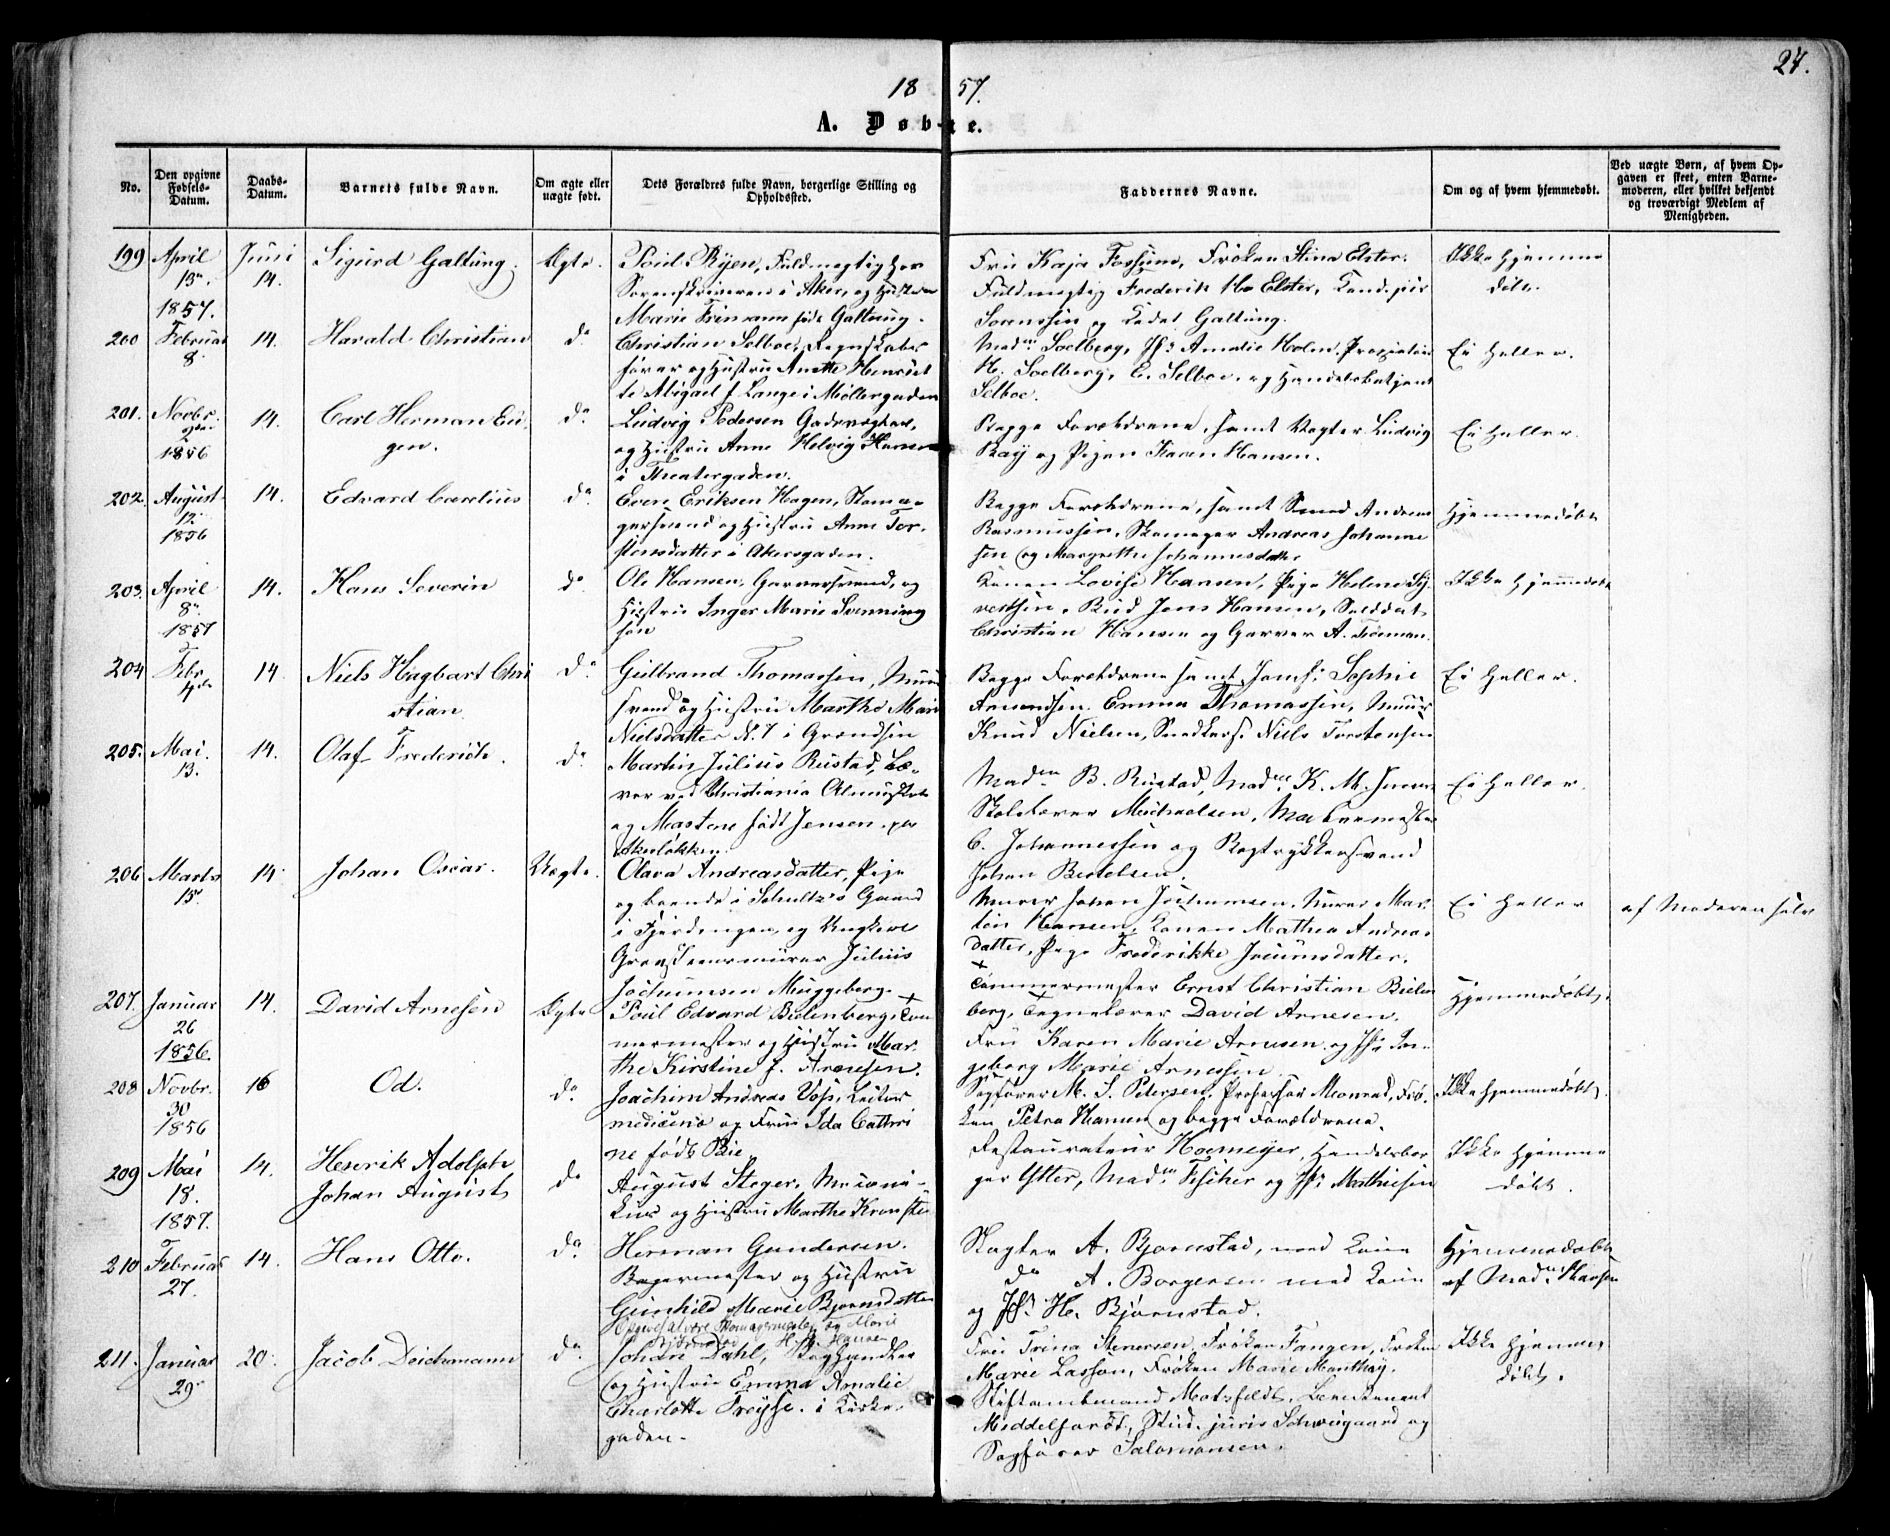 27.
1857.
A. Døbte.
No.
Den opgivne Fødsels-Datum.
Daabs-Datum.
Barnets fulde Navn.
Om ægte eller uægte født.
Dets Forældres fulde Navn, borgerlige Stilling og Opholdssted.
Faddernes Navne.
Om og af hvem hjemmedøbt.
Ved uægte Børn, af hvem Opgaven er skeet, enten Barnemoderen, eller hvilket bekjendt og troværdigt Medlem af Menigheden.
199 April 13. 1857. Juni 14. Sigurd Galtung. Ægte.
Poul Ryen, Fuldmægtig hos
Sorenskriveren i Aker, og Hustru
Marie Frimann født Galtung.
Fru Kaja Fossum, Frøken Stina Elster,
Fuldmægtig Frederik Elster, Cand. jur
Sorenssen og Cadet Galtung.
Ikke hjemme
døbt.
200 Februar 8. 14. Harald Christian do
Christian Selboe, Regnskabs
fører og Hustru Anette Henriet
te Abigael f. Lange i Møllergaden
Madm Soelberg, Jfr Amalie Holm, Proprietær
H. Soelberg, C. Selboe, og Handelsbetjent
Selboe.
Ei heller.
201. Novbr. 2 1856 14. Carl Herman Eu
gen. do
Ludvig Pedersen Gadevægter,
og Hustru Anne Helvig Hansen
i Theatergaden.
Begge Forældrene, samt Vægter Ludvig
Bay og Pigen Karen Hansen.
Ei heller.
202. August 12 1856 14. Edvard Cornelius do
Even Eriksen Hagen, Skoma-
gersvend og Hustru Anne Tor-
stensdatter i Akersgaden.
Begge Forældrene, samt Smed Andreas
Rasmussen, Skomager Andreas Johanne
sen og Margrethe Johannesdatter
Hjemmedøbt
203. April 8. 1857 14. Hans Severin do
Ole Hansen, Garversvend, og
Hustru Inger Marie Svenning
sen
Konen Lovise Hansen, Pige Helene Sy
vertsen, Bud Jens Hansen, Soldat
Christian Hansen og Garver A. Froman.
Ikke hjemmedøbt
204 Febr 14 Niels Hagbart Chri
stian. do
Gulbrand Thomassen, Muur
svend og Hustru Marthe Marie
Nielsdatter N. 7 i Grændsen
Begge Forældrene samt Jomf: Sophie
Amundsen, Emma Thomassen, Muur
Knud Nielsen, Snedkers. Niels Torstensen
Ei heller.
205. Mai. 13. 14. Olaf Frederich. do
Martin Julius Rustad, Læ-
rer ved Christiania Almueskole
og Martene født Jensen, paa
Akerløkken.
Madm B. Rustad, Madm K. M. Jensen
Skolelærer Michaelsen, Malermester
C. Johannessen og Bogtrykkersvend
Johan Bertelsen.
Ei heller.
206 Marts 15 14 Johan Oscar. Uægte.
Olava Andreasdatter, Pige
og boende i Schultz's Gaard
i Fjerdingen, og Ungkarl
Graasteensmurer Julius
Jochumsen Muggeberg.
Murer Johan Jochumsen, Murer Mar
tin Hansen, Konen Mathea Andreas
datter, Pige Frederikke Jocumsdatter.
Ei heller
af Moderen selv
207. Januar 26 1856. 14. David Arnesen Ægte
Poul Edvard Bielenberg, Tøm
mermester og Hustru Mar-
the Kirstine f. Arnesen.
Tømmermester Ernst Christian Bielen
berg, Tegnelærer David Arnesen.
Fru Karen Marie Arnesen og Jfr In-
geborg Marie Arnesen
Hjemmedøbt.
208 Novbr. 30 1856 16 Od. do
Joachim Andreas Voss, Lector
medicinæ og Frue Ida Cathri
ne født Bie
Sagfører M. S. Petersen, Professor Monrad, Frø-
ken Petra Hansen og begge Forældrene.
Ikke hjemmedøbt.
209 Mai 18. 1857. 14. Henrik Adolph
Johan August do
August Steger, Mecani-
kus og Hustru Marthe
Restaurateur Hoemeyer, Handelsbor
ger Ytter, Madm Fischer og Jfr Mathiesen
Ikke hjemme
døbt.
210 Februar 27. 14. Hans Otto. do
Herman Gundersen.
Bagermester og Hustru
Gunhild Marie Bjørnsdatter
Slagter A. Bjørnstad, med Kone
do A. Borgersen med Kone
og Jfr H. Bjørnstad.
Hjemmedøbt
af Madm Hansen
211. Januar 29. 20. Jacob Deichmann do
Johan Dahl, Boghandler
og Hustru Emma Amalie
Charlotte Freysse. i Kirke-
gaden.
Fru Trina Stenersen, Frøken Fangen, Frøken
Marie Lasson, Frøken Marie Manthey.
Stiftamtmand Motzfeldt, Lieutenant
Middelfart, Stud. juris Schweigaard og
Sagfører Salomonsen.
Ikke hjemme
døbt.